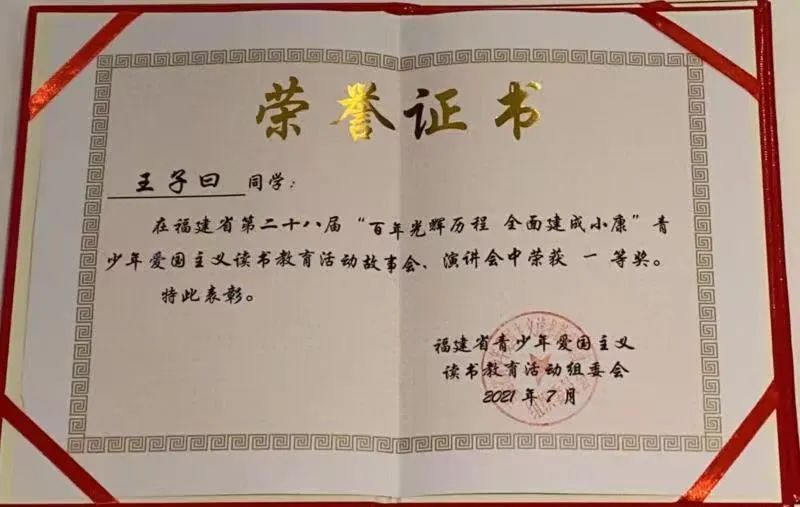 荣誉证书
王子曰 同学：
在福建省第二十八届“百年光辉历程 全面建成小康”青
少年爱国主义读书教育活动故事会、演讲会中荣获 一 等奖。
特此表彰。
福建省青少年爱国主义
读书教育活动组委会
2021年7月